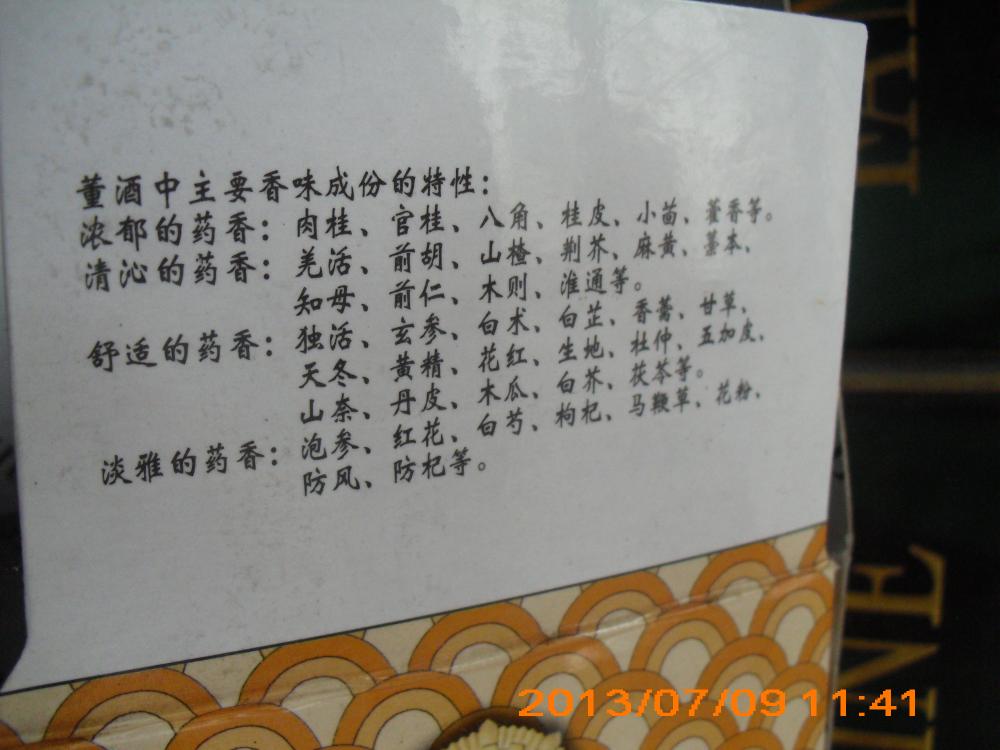 董酒中主要香味成份的特性：
浓郁的药香：肉桂、官桂、八角、桂皮、小茴、藿香等。
清沁的药香：羌活、前胡、山楂、荆芥、麻黄、藁本、
知母、前仁、木则、淮通等。
舒适的药香：独活、玄参、白术、白芷、香薷、甘草、
天冬、黄精、花红、生地、杜仲、五加皮、
山奈、丹皮、木瓜、白芥、茯苓等。
淡雅的药香：泡参、红花、白芍、枸杞、马鞭草、花粉、
防风、防杞等。
2013/07/09 11:41